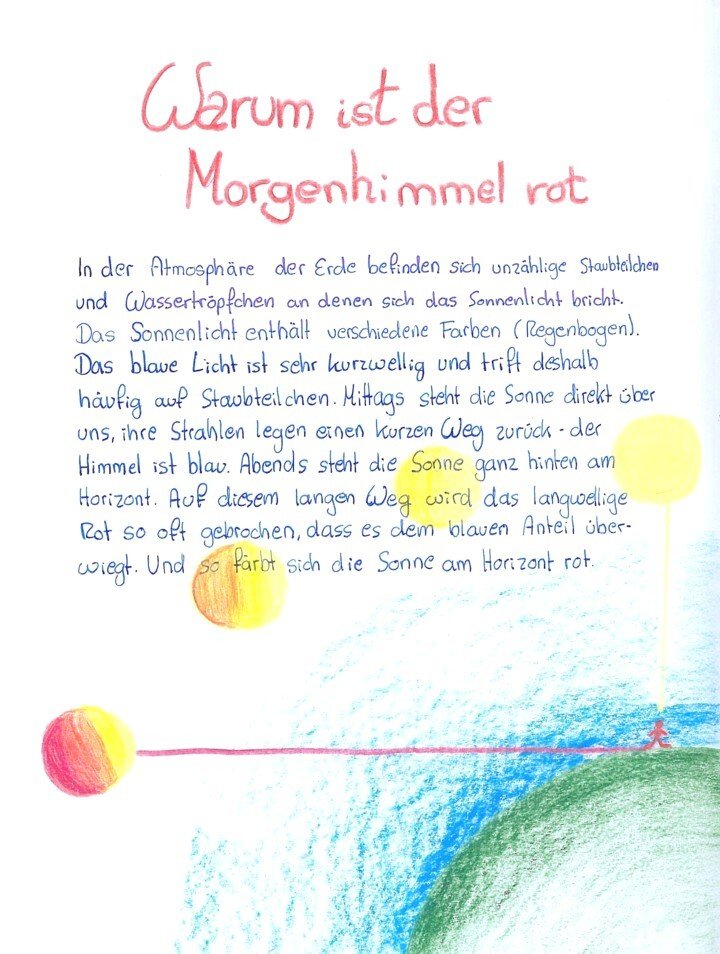 Warum ist der
Morgenhimmel rot
In der Atmosphäre der Erde befinden sich unzählige Staubteilchen
und Wassertröpfchen an denen sich das Sonnenlicht bricht.
Das Sonnenlicht enthält verschiedene Farben (Regenbogen).
Das blaue Licht ist sehr kurzwellig und trift deshalb
häufig auf Staubteilchen. Mittags steht die Sonne direkt über
uns, ihre Strahlen legen einen kurzen Weg zurück - der
Himmel ist blau. Abends steht die Sonne ganz hinten am
Horizont. Auf diesem langen Weg wird das langwellige
Rot so oft gebrochen, dass es dem blauen Anteil über-
wiegt. Und so färbt sich die Sonne am Horizont rot.